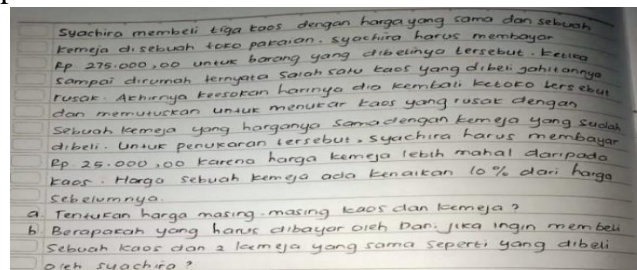 Syachira membeli tiga kaos dengan harga yang sama dan sebuah
kemeja disebuah toko pakaian. Syachira harus membayar
Rp 275.000,00 untuk barang yang dibelinya tersebut. Ketika
sampai dirumah ternyata salah satu kaos yang dibeli jahitannya
rusak. Akhirnya keesokan harinya dia kembali ketoko tersebut
dan memutuskan untuk menukar kaos yang rusak dengan
Sebuah kemeja yang harganya sama dengan kemeja yang sudah
dibeli. Untuk penukaran tersebut, Syachira harus membayar
Rp. 25.000,00 karena harga kemeja lebih mahal daripada
kaos. Harga sebuah kemeja ada kenaikan 10% dari harga
Sebelumnya.
a Tentukan harga masing-masing kaos dan kemeja?
b Berapakah yang harus dibayar oleh Dani jika ingin membeli
Sebuah kaos dan 2 kemeja yang sama seperti yang dibeli
oleh syachira?